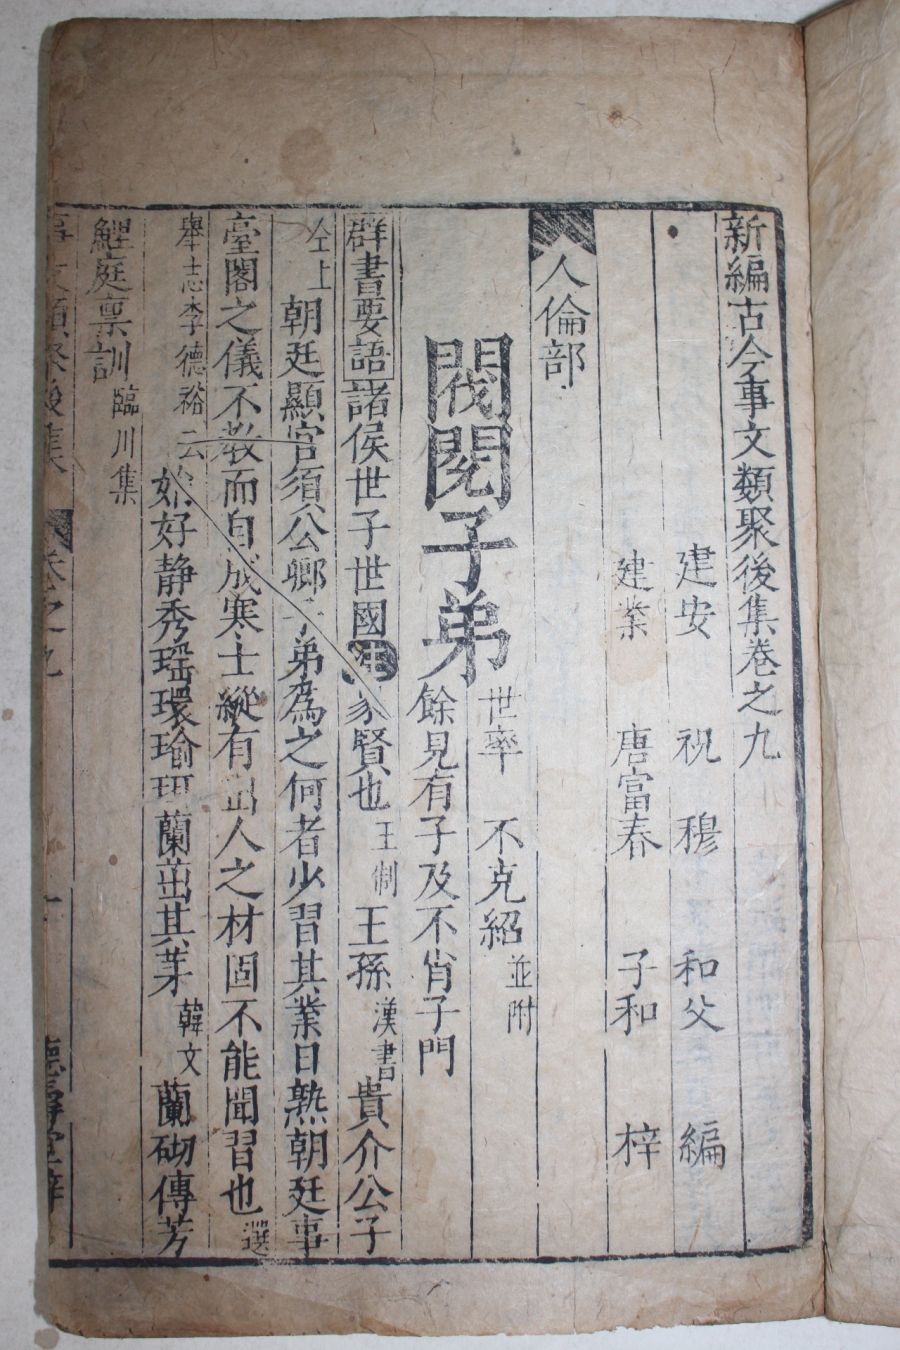 新編古今事文類聚後集卷之九
建安 祝 穆 和父 編
建業 唐富春 子和 梓
人倫部
閥閱子弟 世率 不克紹 並附
餘見有子及不肖子門
群書要語 諸侯世子世國 注 家賢也 王制 王孫 漢書 貴介公子
仝上 朝廷顯官須公卿子弟為之何者少習其業目熟朝廷事
臺閣之儀不教而自成寒士縱有出人之材固不能聞習也 選
舉志李德裕云 娰好静秀瑶環瑜珥蘭茁其茅 韓文 蘭砌傳芳
鯉庭稟訓 臨川集
事文類聚後集 卷之九 一 德壽堂梓